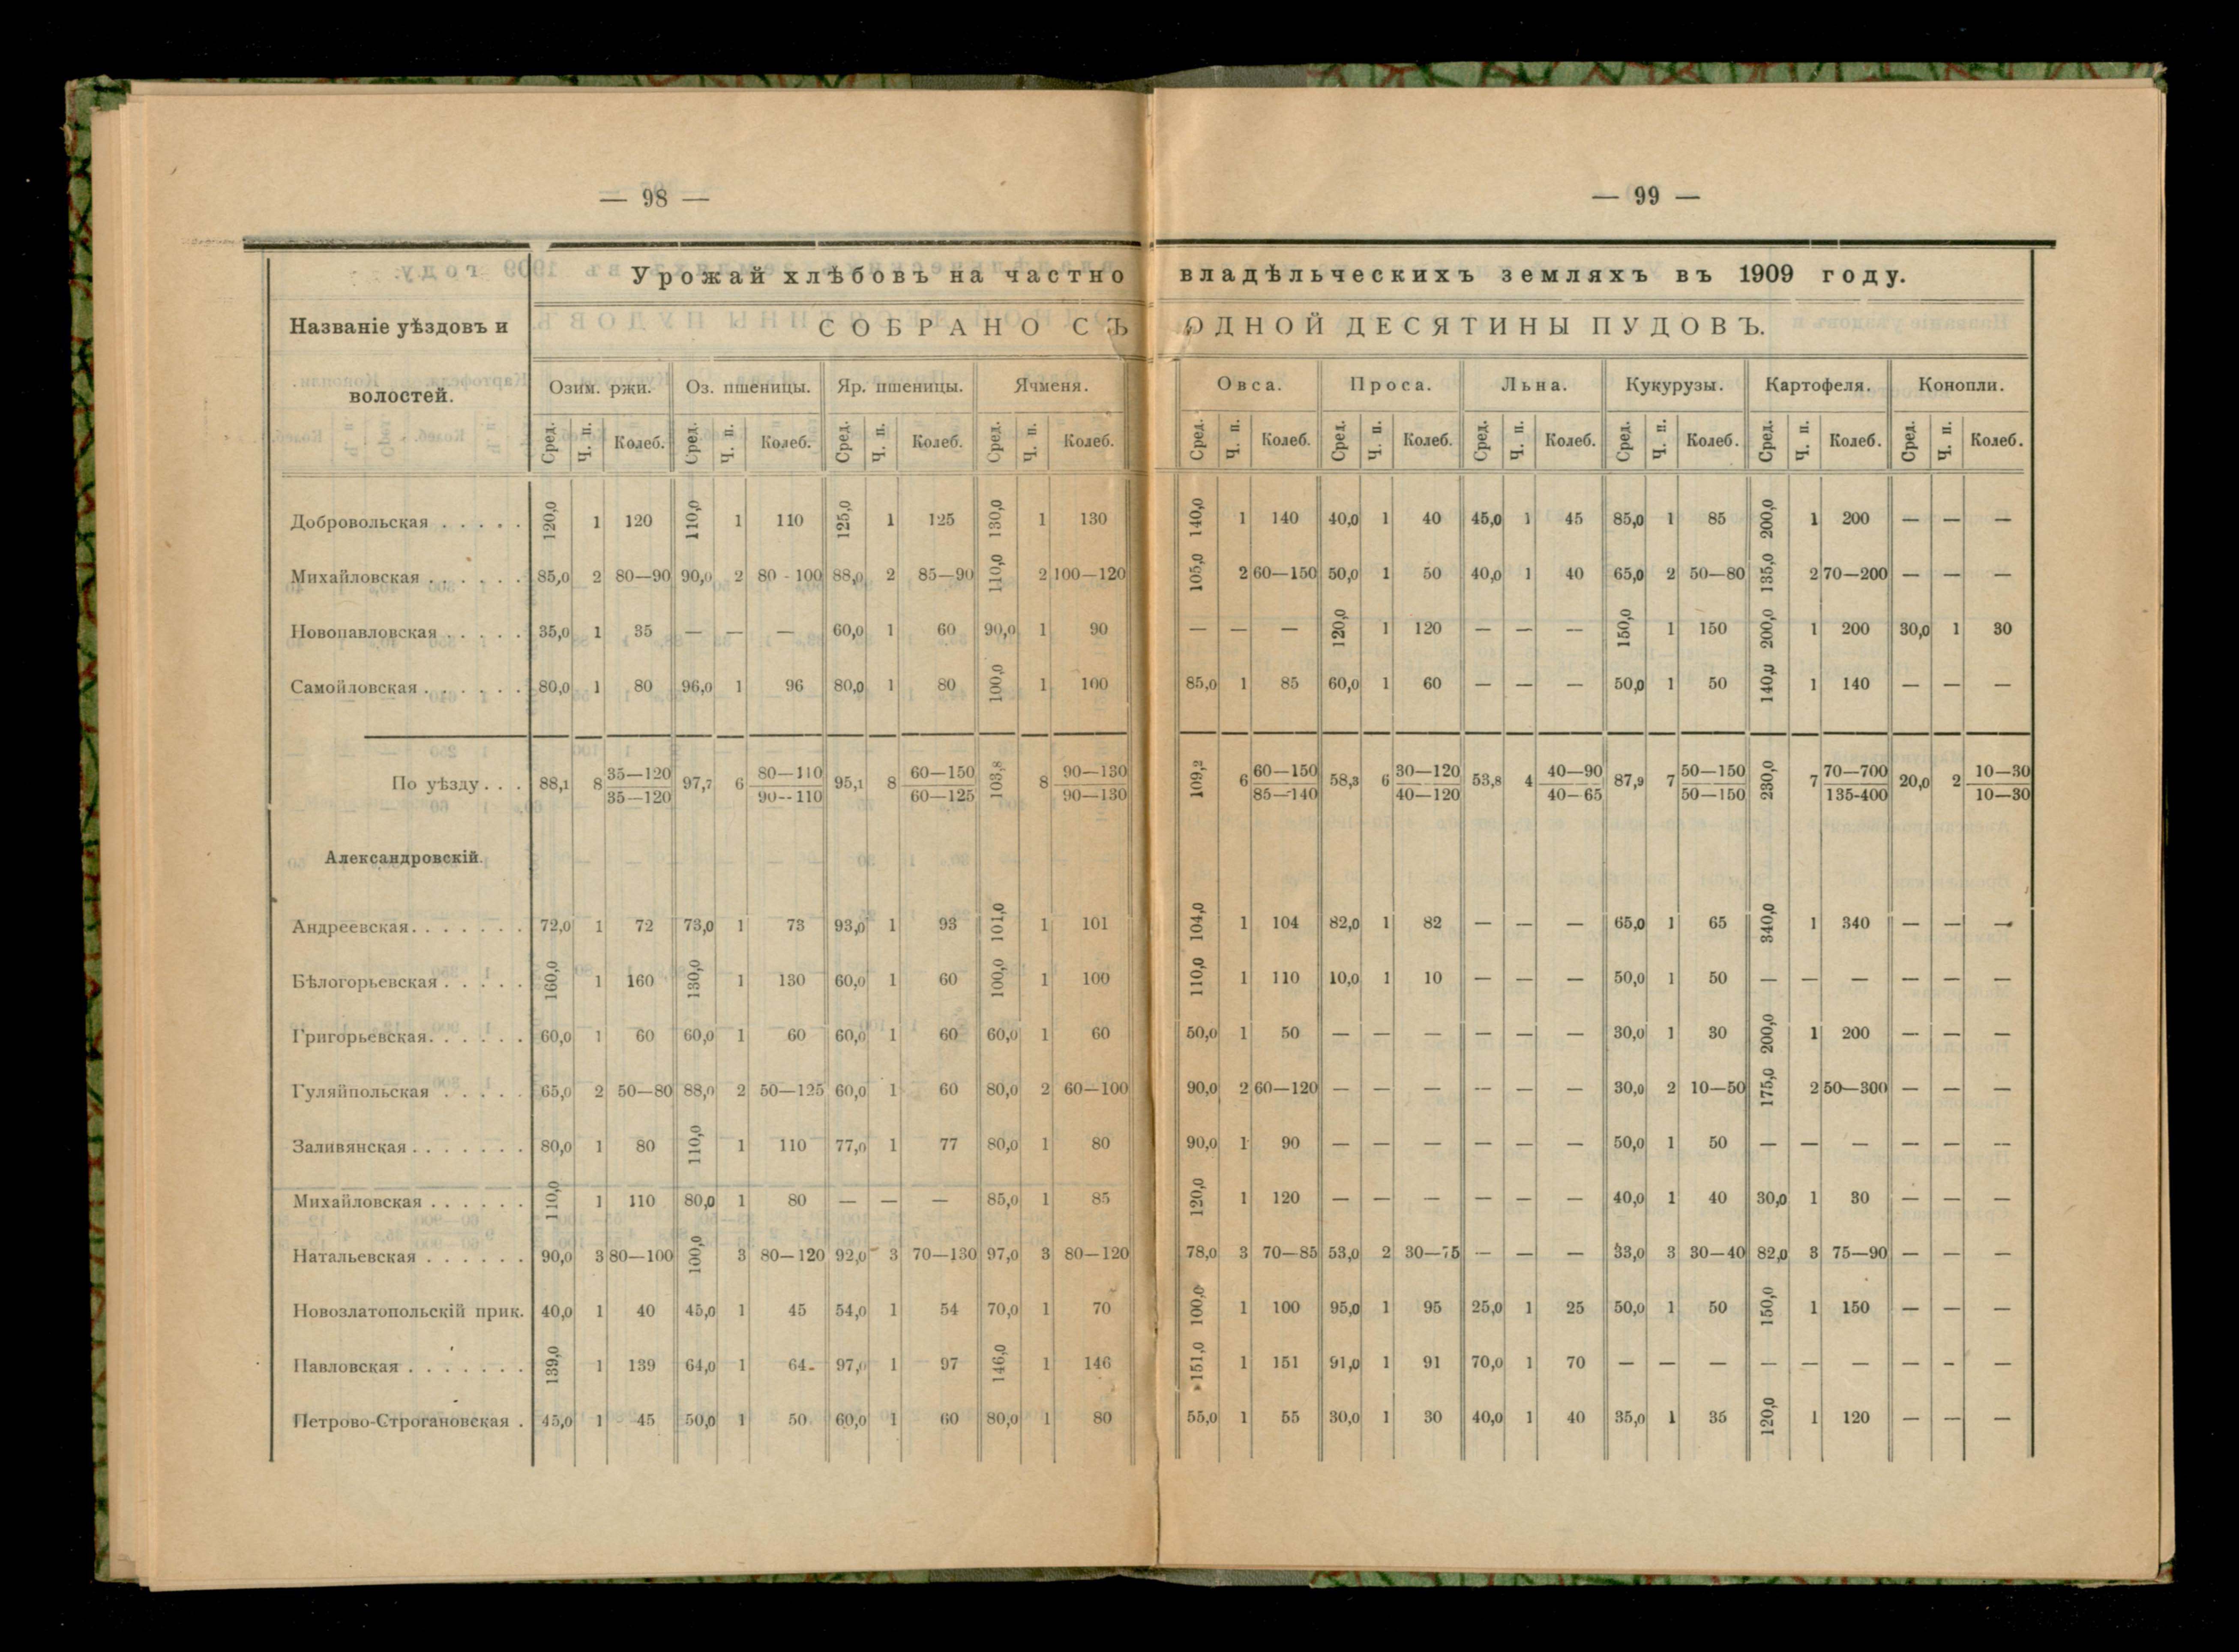 — 98 —
— 99 —
Урожай хлѣбовъ на частно владѣльческихъ земляхъ въ 1909 году.
Названіе уѣздовъ и волостей.
СОБРАНО СЪ ОДНОЙ ДЕСЯТИНЫ ПУДОВЪ.
Озим. ржи. Оз. пшеницы. Яр. пшеницы. Ячменя. Овса. Проса. Льна. Кукурузы. Картофеля. Конопли.
Сред. Ч. п. Колеб. Сред. Ч. п. Колеб. Сред. Ч. п. Колеб. Сред. Ч. п. Колеб. Сред. Ч. п. Колеб. Сред. Ч. п. Колеб. Сред. Ч. п. Колеб. Сред. Ч. п. Колеб. Сред. Ч. п. Колеб. Сред. Ч. п. Колеб.
Добровольская . . . . . 120,0 1 120 110,0 1 110 125,0 1 125 130,0 1 130 140,0 1 140 40,0 1 40 45,0 1 45 85,0 1 85 200,0 1 200 — — —
Михайловская . . . . . . 85,0 2 80—90 90,0 2 80-100 88,0 2 85—90 110,0 2 100—120 105,0 2 60—150 50,0 1 50 40,0 1 40 65,0 2 50—80 135,0 2 70—200 — — —
Новопавловская . . . . . 35,0 1 35 — — — 60,0 1 60 90,0 1 90 — — — 120,0 1 120 — — — 150,0 1 150 200,0 1 200 30,0 1 30
Самойловская . . . . . . 80,0 1 80 96,0 1 96 80,0 1 80 100,0 1 100 85,0 1 85 60,0 1 60 — — — 50,0 1 50 140,0 1 140 — — —
По уѣзду . . . 88,1 8 35—120 35—120 97,7 6 80—110 90--110 95,1 8 60—150 60—125 103,8 8 90—130 90—130 109,2 6 60—150 85—140 58,3 6 30—120 40—120 53,8 4 40—90 40—65 87,9 7 50—150 50—150 230,0 7 70—700 135-400 20,0 2 10—30 10—30
Александровскій.
Андреевская . . . . . . . 72,0 1 72 73,0 1 73 93,0 1 93 101,0 1 101 104,0 1 104 82,0 1 82 — — — 65,0 1 65 340,0 1 340 — — —
Бѣлогорьевская . . . . . 160,0 1 160 130,0 1 130 60,0 1 60 100,0 1 100 110,0 1 110 10,0 1 10 — — — 50,0 1 50 — — — — — —
Григорьевская . . . . . . 60,0 1 60 60,0 1 60 60,0 1 60 60,0 1 60 50,0 1 50 — — — — — — 30,0 1 30 200,0 1 200 — — —
Гуляйпольская . . . . . 65,0 2 50—80 88,0 2 50—125 60,0 1 60 80,0 2 60—100 90,0 2 60—120 — — — — — — 30,0 2 10—50 175,0 2 50—300 — — —
Заливянская . . . . . . . 80,0 1 80 110,0 1 110 77,0 1 77 80,0 1 80 90,0 1 90 — — — — — — 50,0 1 50 — — — — — —
Михайловская . . . . . . 110,0 1 110 80,0 1 80 — — — 85,0 1 85 120,0 1 120 — — — — — — 40,0 1 40 30,0 1 30 — — —
Натальевская . . . . . . 90,0 3 80—100 100,0 3 80—120 92,0 3 70—130 97,0 3 80—120 78,0 3 70—85 53,0 2 30—75 — — — 33,0 3 30—40 82,0 3 75—90 — — —
Новозлатопольскій прик. 40,0 1 40 45,0 1 45 54,0 1 54 70,0 1 70 100,0 1 100 95,0 1 95 25,0 1 25 50,0 1 50 150,0 1 150 — — —
Павловская . . . . . . . 139,0 1 139 64,0 1 64 97,0 1 97 146,0 1 146 151,0 1 151 91,0 1 91 70,0 1 70 — — — — — — — — —
Петрово-Строгановская . 45,0 1 45 50,0 1 50 60,0 1 60 80,0 1 80 55,0 1 55 30,0 1 30 40,0 1 40 35,0 1 35 120,0 1 120 — — —